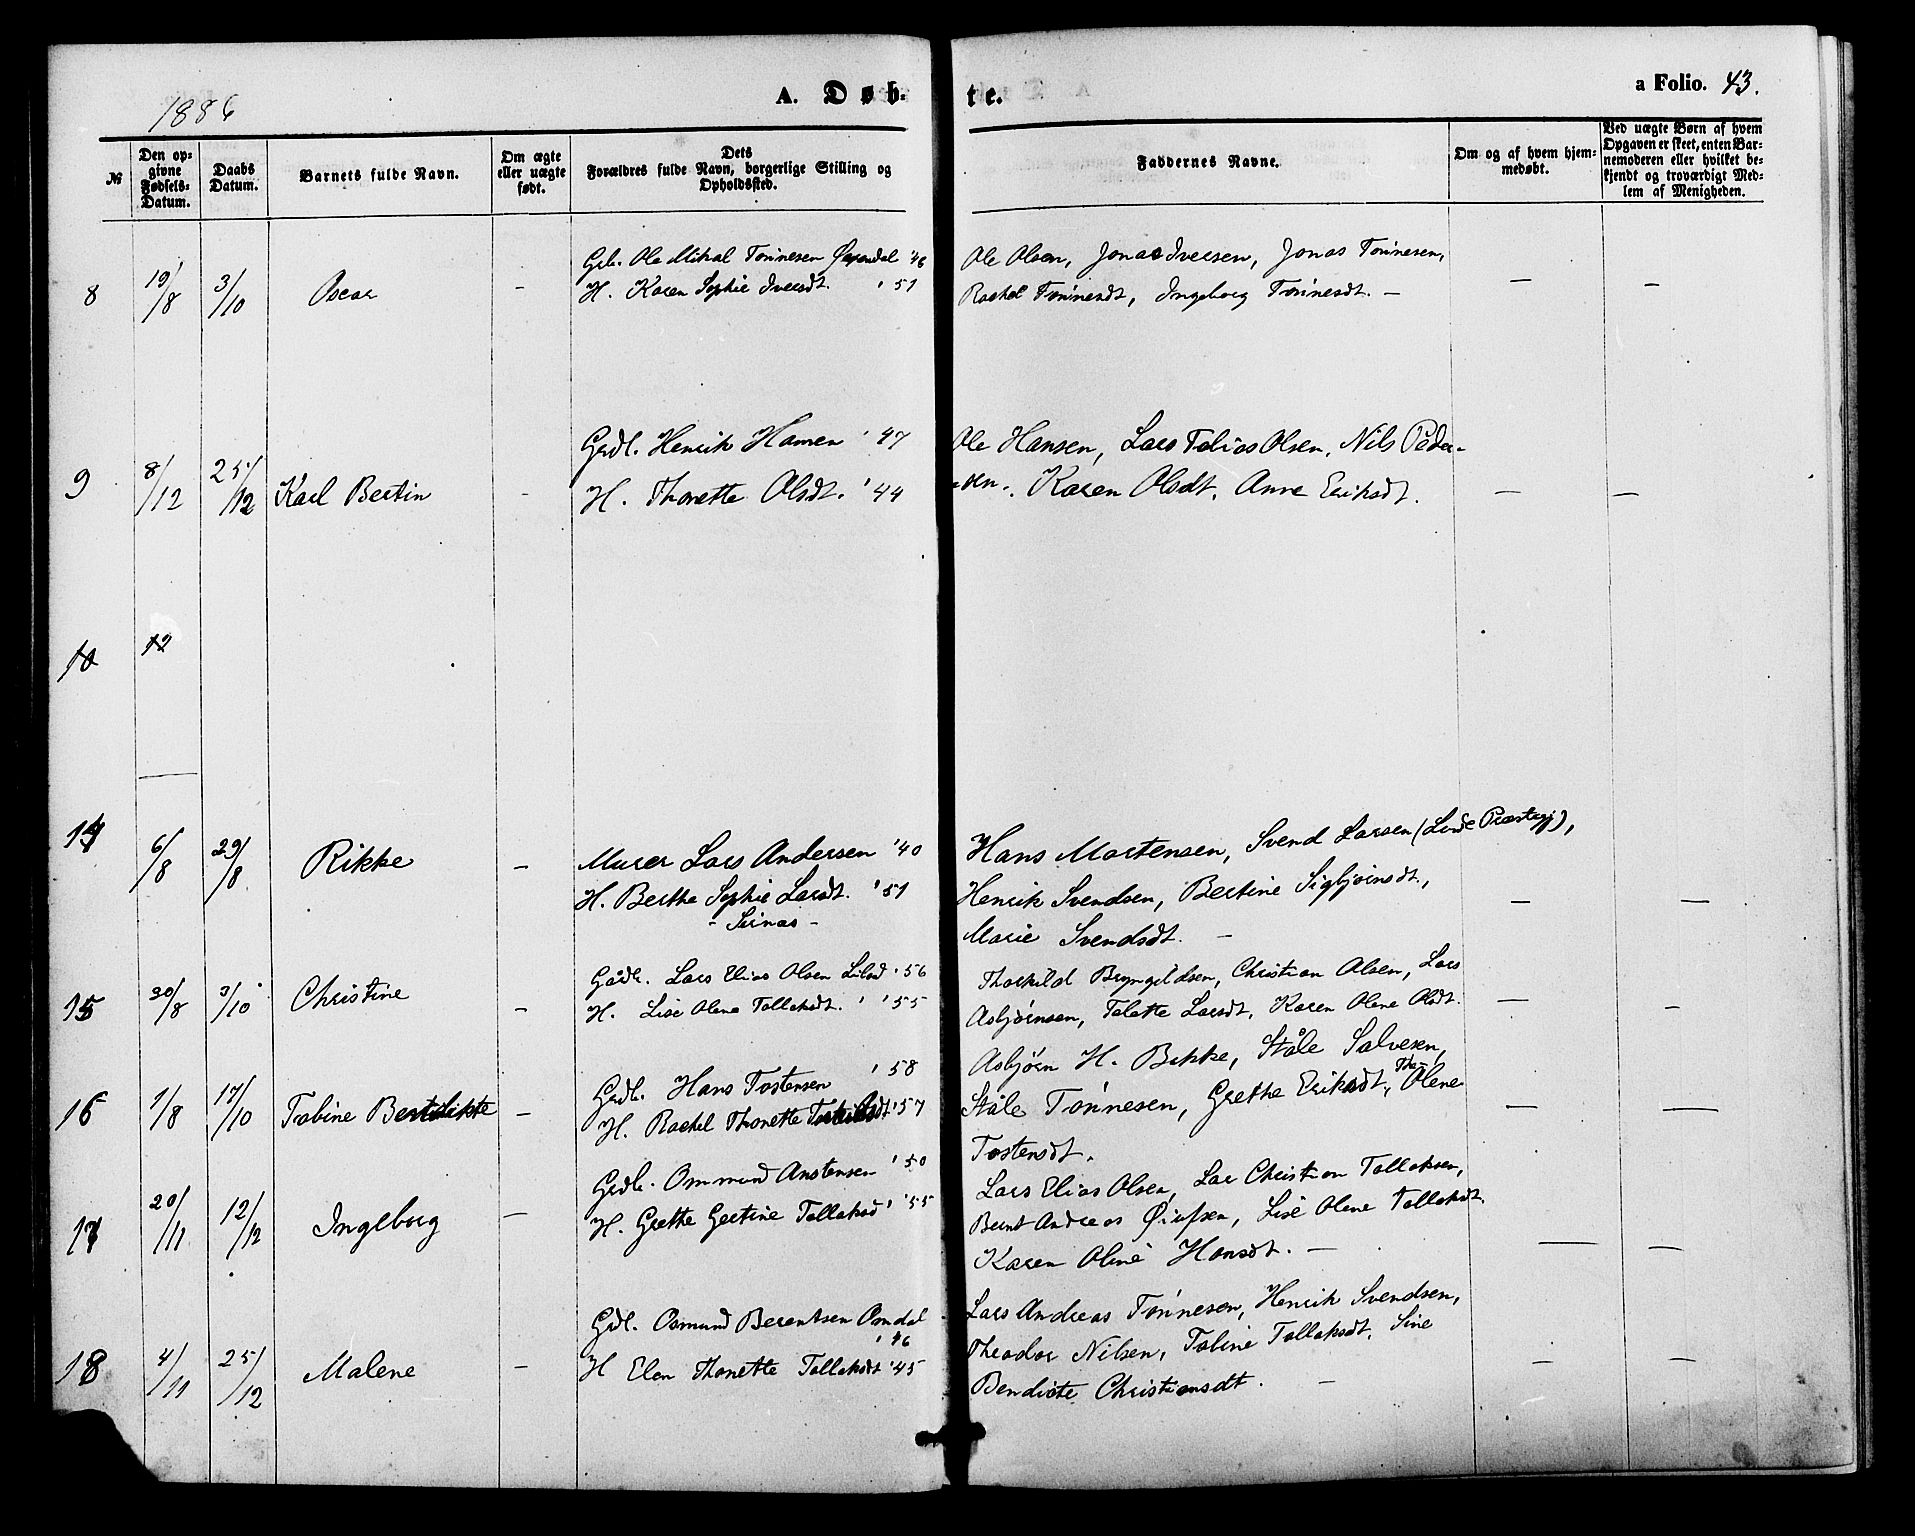 1886
A. Døb-
te.
a Folio. 43.
№
Den op-
givne
Fødsels-
Datum.
Daabs
Datum.
Barnets fulde Navn.
Om ægte
eller uægte
født.
Dets
Forældres fulde Navn, borgerlige Stilling og
Opholdssted.
Faddernes Navne.
Om og af hvem hjem-
medøbt.
Ved uægte Børn af hvem
Opgaven er skeet, enten Bar-
nemoderen eller hvilket be-
kjendt og troværdigt Med-
lem af Menigheden.
8 19/8 3/10 Oscar -
Ole Mikal Tønnesen '46
H. Karen Sophie Iversdt. '51
Ole Olsen, Jonas Iversen, Jonas Tønnesen,
Rachel Tønnesdt, Ingeborg Tønnesdt. -
- -
9 8/12 25/12 Karl Bertin -
Grdl. Henrik Hansen '47
H. Thonette Olsdt. '44
Ole Hansen, Lars Tobias Olsen, Nils Peder-
sen. Karen Olsdt. Anne Eriksdt.
- -
10 12
14 6/8 29/8 Rikke -
Murer Lars Andersen '40
H. Berthe Sophie Larsdt. '51
- Sirnas -
Hans Mortensen, Svend Larsen (Præstegj),
Henrik Svendsen, Bertine Sigbjørnsdt.,
Marie Svendsdt. -
- -
15 30/8 3/10 Christine -
Gådl. Lars Elias Olsen '56
H. Lise Olene Tollaksdt. '55
Thorkild Bryngildsen, Christian Olsen, Lars
Asbjørnsen, Talette Larsdt, Karen Olene Olsdt.
- -
16 1/8 17/10 Tobine Bendikte -
Grdl. Hans Tostensen '58
H. Rachel Thonette '57
Asbjørn H. Bakke, Ståle Salvesen,
Ståle Tønnesen, Grethe Eriksdt, Tho- Olene
Tostensdt.
- -
17 20/11 12/12 Ingeborg -
Grdl. Ommund Anstensen '50
H. Grethe Gertine Tollaksd '55
Lars Elias Olsen, Lar Christian Tollaksen,
Bernt Andreas Øiufsen, Lise Olene Tollaksdt.
Karen Oline Hansdt. -
- -
18 4/11 25/12 Malene -
Grdl. Osmund Berentsen Omdal
'46
H Elen Thonette Tollaksdt '45
Lars Andreas Tønnesen, Henrik Svendsen,
Theodor Nilsen, Tobine Tollaksdt. Sine
Bendicte Christiansdt. -
- -